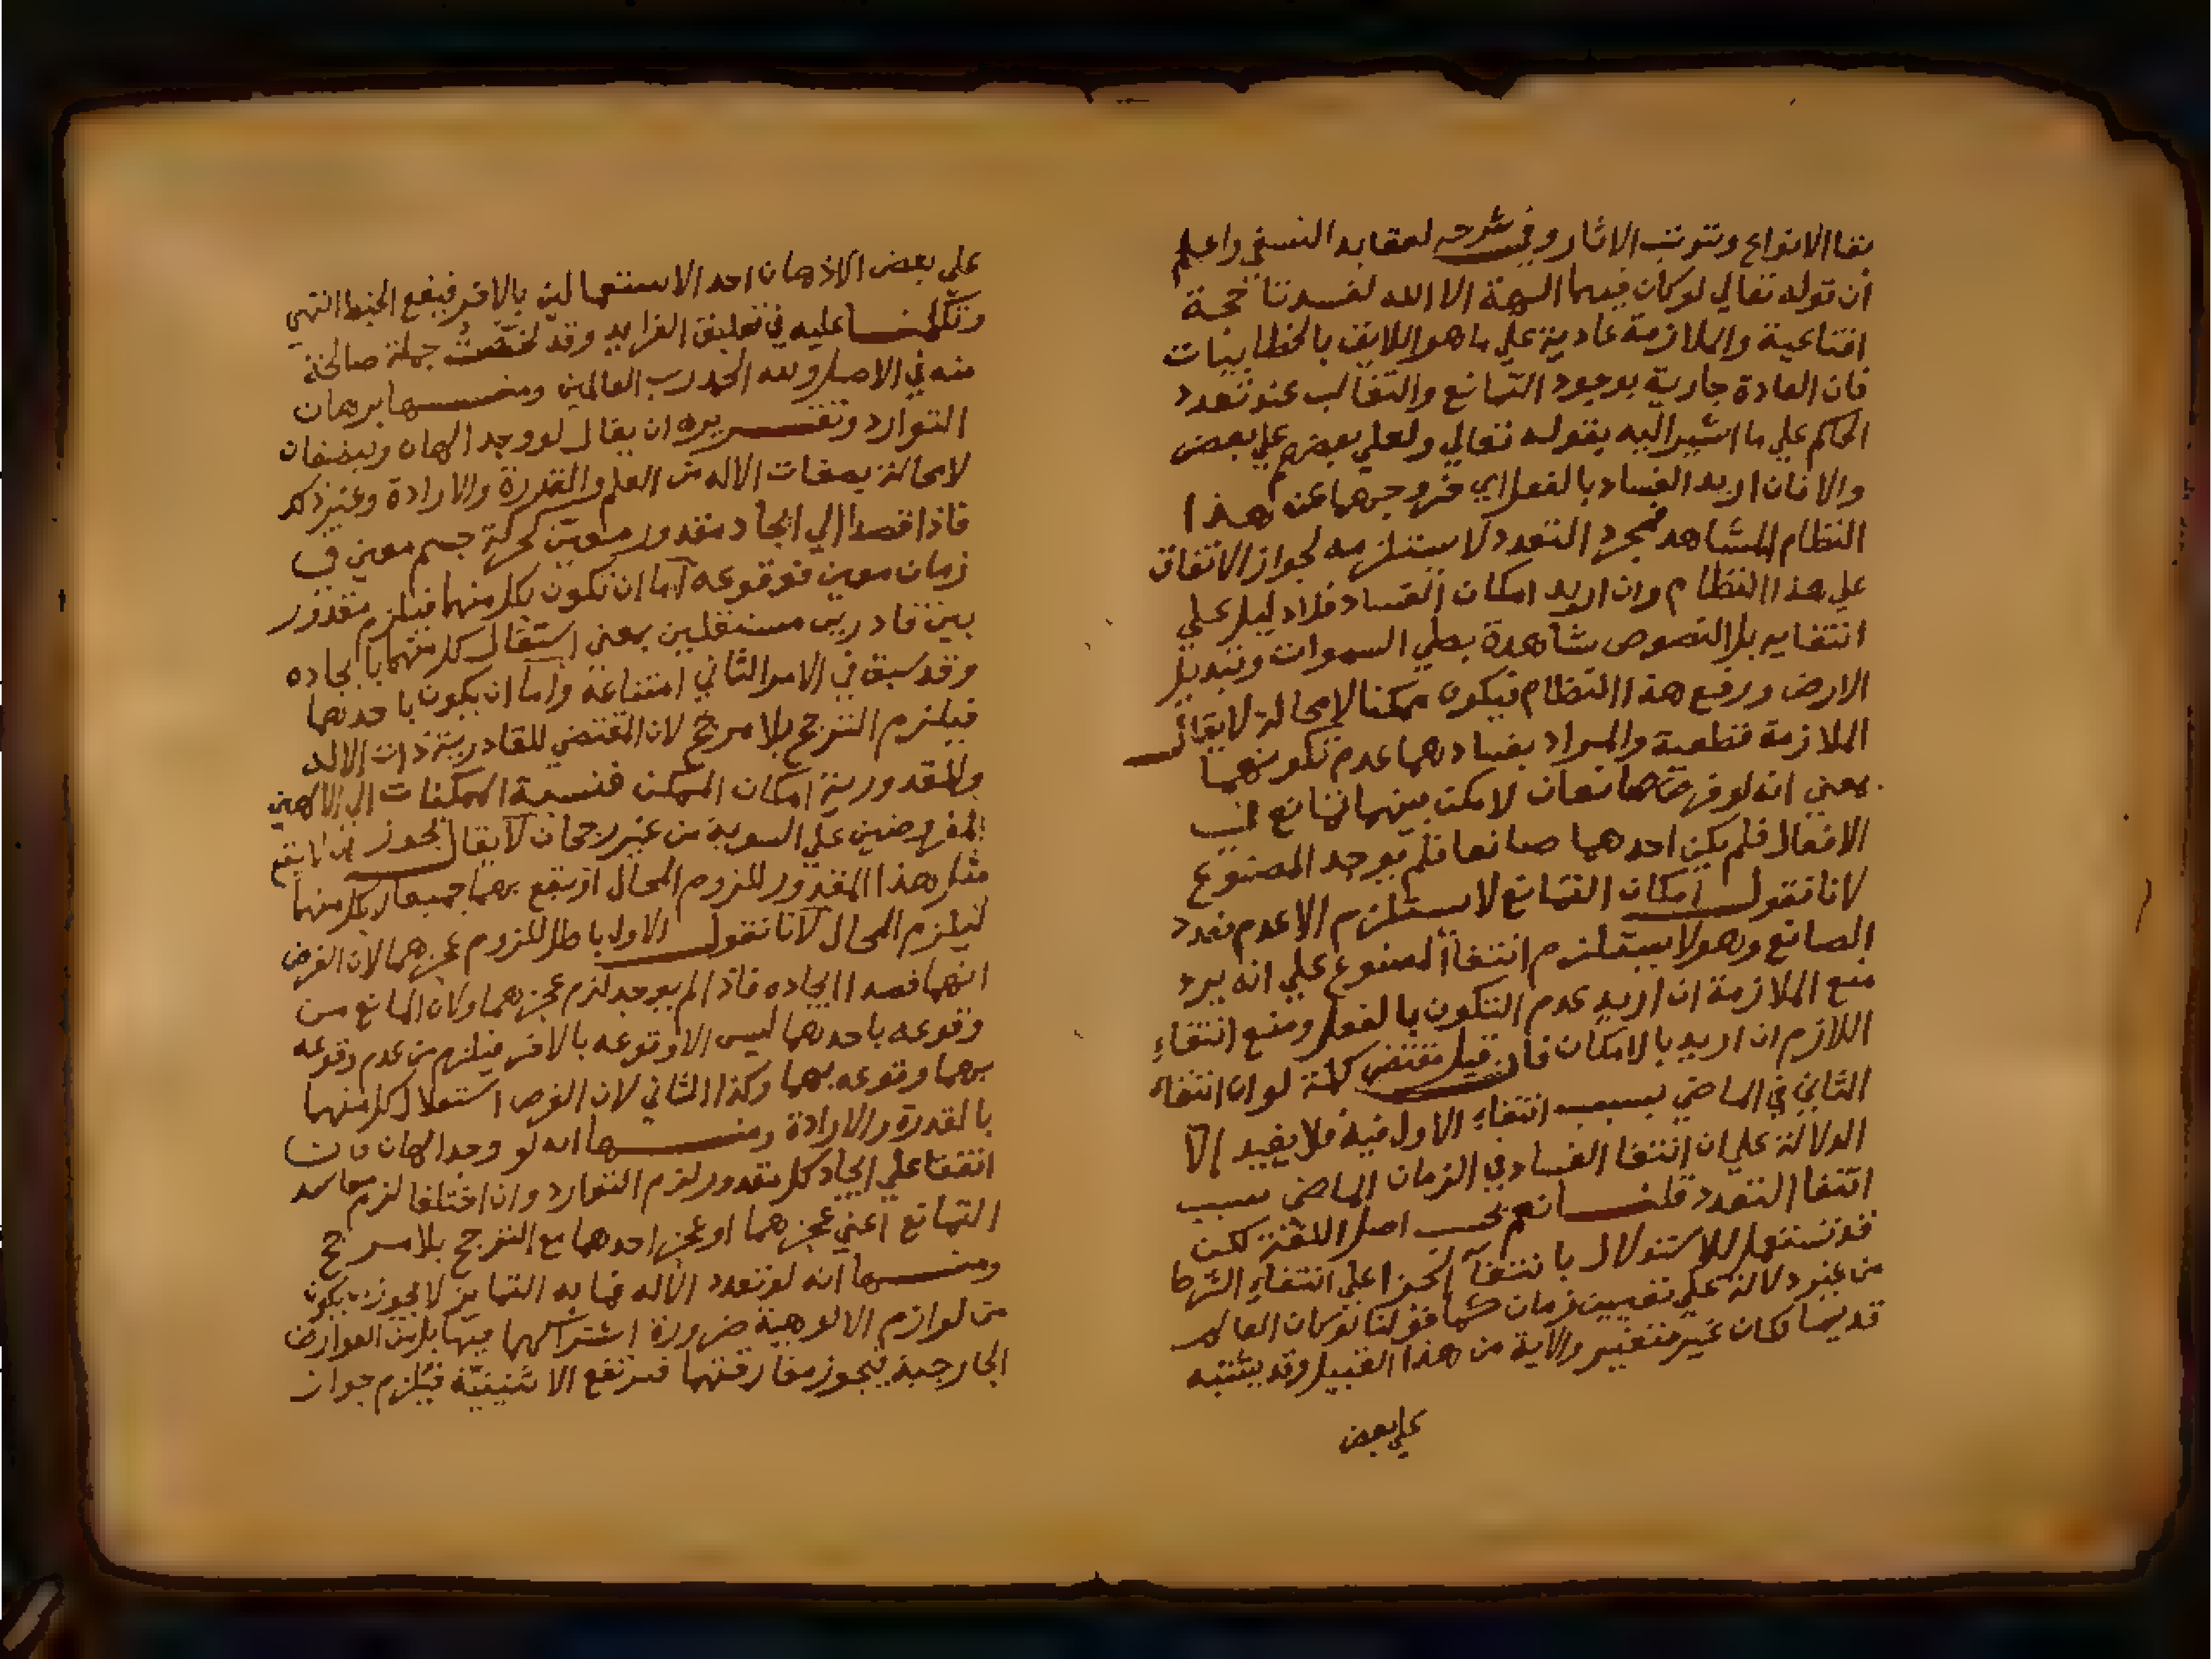 بقا الانواع وترتب الاثار وفي شرحه لعقايد النسفي واعلم
ان قوله تعالي لو كان فيهما الهة الا الله لفسدتا حجة
اقناعية والملازمة عادية علي ما هو اللايق بالخطابيات
فان العادة جارية بوجود التمانع والتغالب عند تعدد
الحاكم علي ما اشير اليه بقوله تعالي ولعلي بعضهم علي بعض
والا فان اريد الفساد بالفعل اي خروجهما عن هذا
النظام المشاهد فمجرد التعدد لا يستلزمه لجواز الاتفاق
علي هذا النظام وان اريد امكان الفساد فلا دليل علي
انتفايه بل النصوص شاهدة بطي السموات وتبديل
الارض ورفع هذا النظام فيكون ممكنا لا محالة لا يقال
الملازمة قطعية والمراد بفسادهما عدم تكونهما
بمعني انه لو فرض صانعان لامكن بينهما تمانع في
الافعال فلم يكن احدهما صانعا فلم يوجد المصنوع
لانا نقول امكان التمانع لا يستلزم الا عدم تعدد
الصانع وهو لا يستلزم انتفا المصنوع علي انه يرد
منع الملازمة ان اريد عدم التكون بالفعل ومنع انتفاء
اللازم ان اريد بالامكان فان قيل مقتضي كلمة لو ان انتفاء
الثاني في الماضي بسبب انتفاء الاول فيه فلا يفيد الا
الدلالة علي ان انتفا الفساد في الزمان الماضي بسبب
انتفا التعدد قلنا نعم بحسب اصل اللغة لكن
قد تستعمل للاستدلال بانتفآ الجزا علي انتفاء الشرط
من غير دلالة علي تعيين زمان كما في قولنا لو كان العالم
قديما لكان غير متغير والاية من هذا القبيل وقد يشتبه
علي بعض
علي بعض الاذهان احد الاستعمالين بالاخر فيقع الخبط انتهي
وتكلمنا عليه في تعليق الفرايد وقد لخصت جملة صالحة
منه في الاصل ولله الحمد رب العالمين ومنها برهان
التوارد وتقريره ان يقال لو وجد الهان ويتصفان
لا محالة بصفات الاله من العلم والقدرة والارادة وغير ذلك
فاذا قصدا الي ايجاد مقدور معين كحركة جسم معين في
زمان معين فوقوعه اما ان يكون بكل منهما فيلزم مقدور
بين قادرين مستقلين بمعني استقلال كل منهما بايجاده
وقد سبق في الامر الثاني امتناعه واما ان يكون باحدهما
فيلزم الترجح بلا مرجح لان المقتضي للقادرية ذات الاله
وللمقدورية امكان الممكن فنسبة الممكنات الي الالهين
المفروضين علي السوية من غير رجحان لا يقال يجوز ان لا يقع
مثل هذا المقدور للزوم المحال او يقع بهما جميعا لا بكل منهما
ليلزم المحال لانا نقول الاول باطل للزوم عجزهما لان الفرض
انهما قصدا ايجاده فاذا لم يوجد لزم عجزهما ولان المانع من
وقوعه باحدهما ليس الا وقوعه بالاخر فيلزم من عدم وقوعه
بهما وقوعه بهما وكذا الثاني لان الفرض استقلال كل منهما
بالقدرة والارادة ومنها انه لو وجد الهان فان
اتفقا علي ايجاد كل مقدور لزم التوارد وان اختلفا لزم مفاسد
التمانع اعني عجزهما او عجز احدهما مع الترجح بلا مرجح
ومنها انه لو تعدد الاله فما به التمايز لا يجوز ان يكون
من لوازم الالوهية ضرورة اشتراكهما فيها بل من العوارض
الخارجية فيجوز مفارقتها فترتفع الاثنينية فيلزم جواز